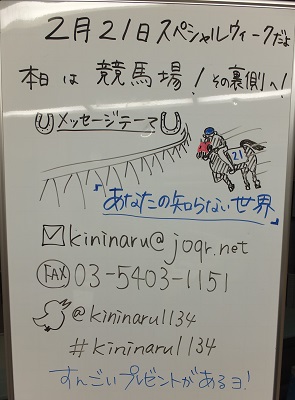 2月21日スペシャルウィークだよ
本日は競馬場！その裏側へ！
メッセージテーマ
21
『あなたの知らない世界』
kinimaru@joqr.net
FAX 03-5403-1151
@kinimaru1134
#kinimaru1134
すんごいプレゼントがあるヨ！